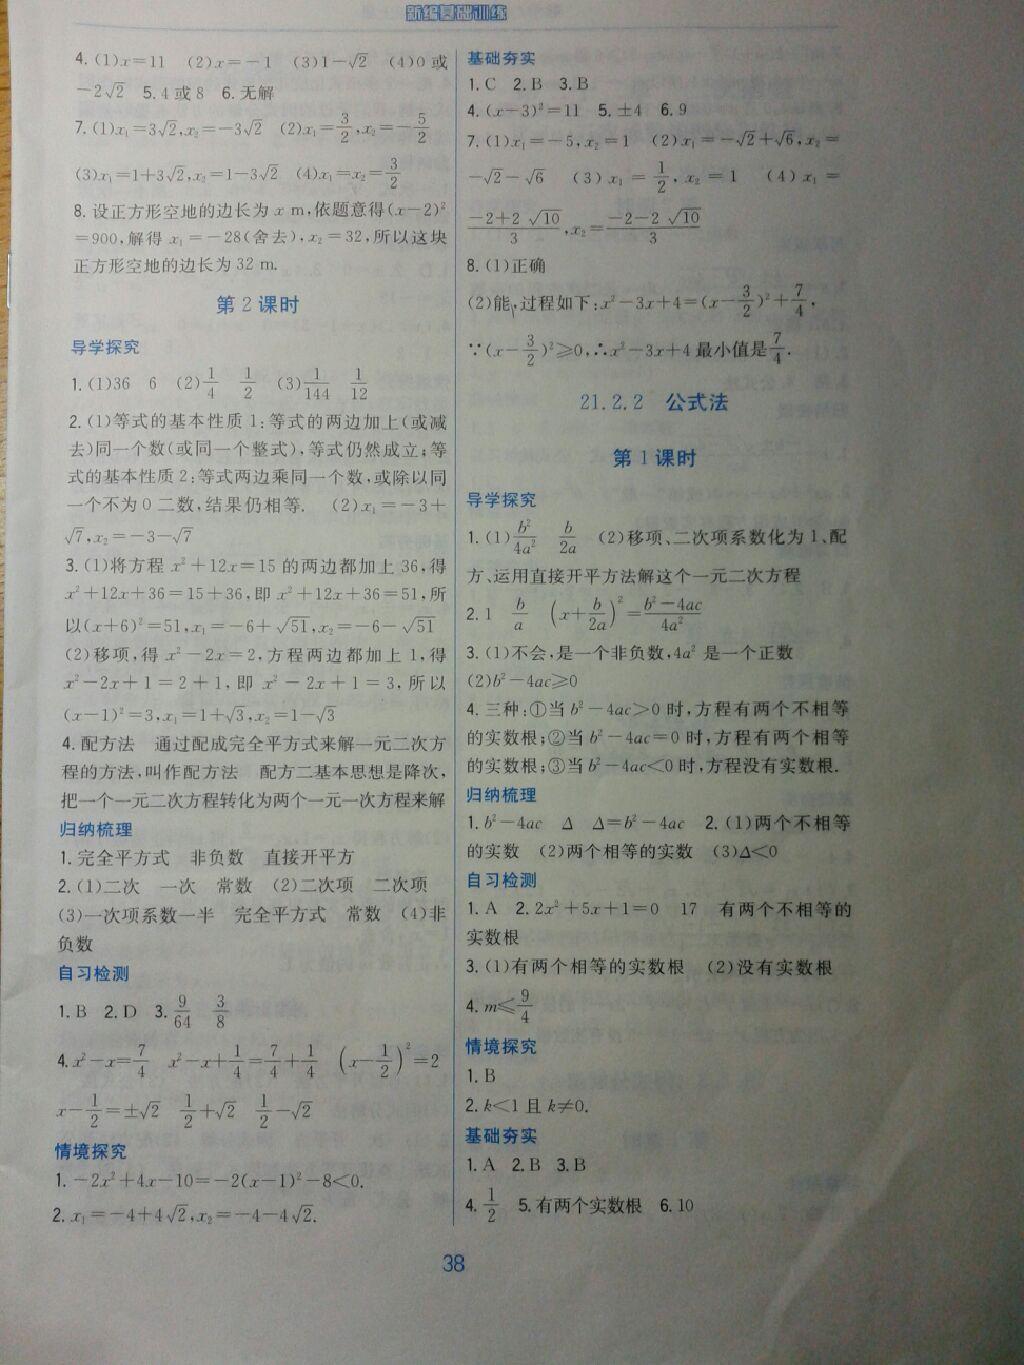 新编基础训练
4. (1)x=11 (2)x=-1 (3)1-√2 (4)0 或
-2√2 5. 4 或 8 6. 无解
7. (1)x₁=3√2,x₂=-3√2 (2)x₁=3/2,x₂=-5/2
(3)x₁=1+3√2,x₂=1-3√2 (4)x₁=x₂=3/2
8. 设正方形空地的边长为 x m,依题意得(x-2)²
=900,解得 x₁=-28(舍去),x₂=32,所以这块
正方形空地的边长为 32 m.
第 2 课时
导学探究
1. (1)36 6 (2)1/4 1/2 (3)1/144 1/12
2. (1)等式的基本性质 1:等式的两边加上(或减
去)同一个数(或同一个整式),等式仍然成立;等
式的基本性质 2:等式两边乘同一个数,或除以同
一个不为 0 二数,结果仍相等. (2)x₁=-3+
√7,x₂=-3-√7
3. (1)将方程 x²+12x=15 的两边都加上 36,得
x²+12x+36=15+36,即 x²+12x+36=51,所
以(x+6)²=51,x₁=-6+√51,x₂=-6-√51
(2)移项,得 x²-2x=2,方程两边都加上 1,得
x²-2x+1=2+1,即 x²-2x+1=3,所以
(x-1)²=3,x₁=1+√3,x₂=1-√3
4. 配方法 通过配成完全平方式来解一元二次方
程的方法,叫作配方法 配方二基本思想是降次,
把一个一元二次方程转化为两个一元一次方程来解
归纳梳理
1. 完全平方式 非负数 直接开平方
2. (1)二次 一次 常数 (2)二次项 二次项
(3)一次项系数一半 完全平方式 常数 (4)非
负数
自习检测
1. B 2. D 3. 9/64 3/8
4. x²-x=7/4 x²-x+1/4=7/4+1/4 (x-1/2)²=2
x-1/2=±√2 1/2+√2 1/2-√2
情境探究
1. -2x²+4x-10=-2(x-1)²-8<0.
2. x₁=-4+4√2,x₂=-4-4√2.
基础夯实
1. C 2. B 3. B
4. (x-3)²=11 5. ±4 6. 9
7. (1)x₁=-5,x₂=1 (2)x₁=-√2+√6,x₂=
-√2-√6 (3)x₁=1/2,x₂=1 (4)x₁=
(-2+2√10)/3,x₂=(-2-2√10)/3
8. (1)正确
(2)能,过程如下:x²-3x+4=(x-3/2)²+7/4,
∵(x-3/2)²≥0,∴x²-3x+4 最小值是7/4.
21.2.2 公式法
第 1 课时
导学探究
1. (1)b²/4a² b/2a (2)移项、二次项系数化为 1、配
方、运用直接开平方法解这个一元二次方程
2. 1 b/a (x+b/2a)²=(b²-4ac)/4a²
3. (1)不会,是一个非负数,4a² 是一个正数
(2)b²-4ac≥0
4. 三种:①当 b²-4ac>0 时,方程有两个不相等
的实数根;②当 b²-4ac=0 时,方程有两个相等
的实数根;③当 b²-4ac<0 时,方程没有实数根.
归纳梳理
1. b²-4ac Δ Δ=b²-4ac 2. (1)两个不相等
的实数 (2)两个相等的实数 (3)Δ<0
自习检测
1. A 2. 2x²+5x+1=0 17 有两个不相等的
实数根
3. (1)有两个相等的实数根 (2)没有实数根
4. m≤9/4
情境探究
1. B
2. k<1 且 k≠0.
基础夯实
1. A 2. B 3. B
4. 1/2 5. 有两个实数根 6. 10
38